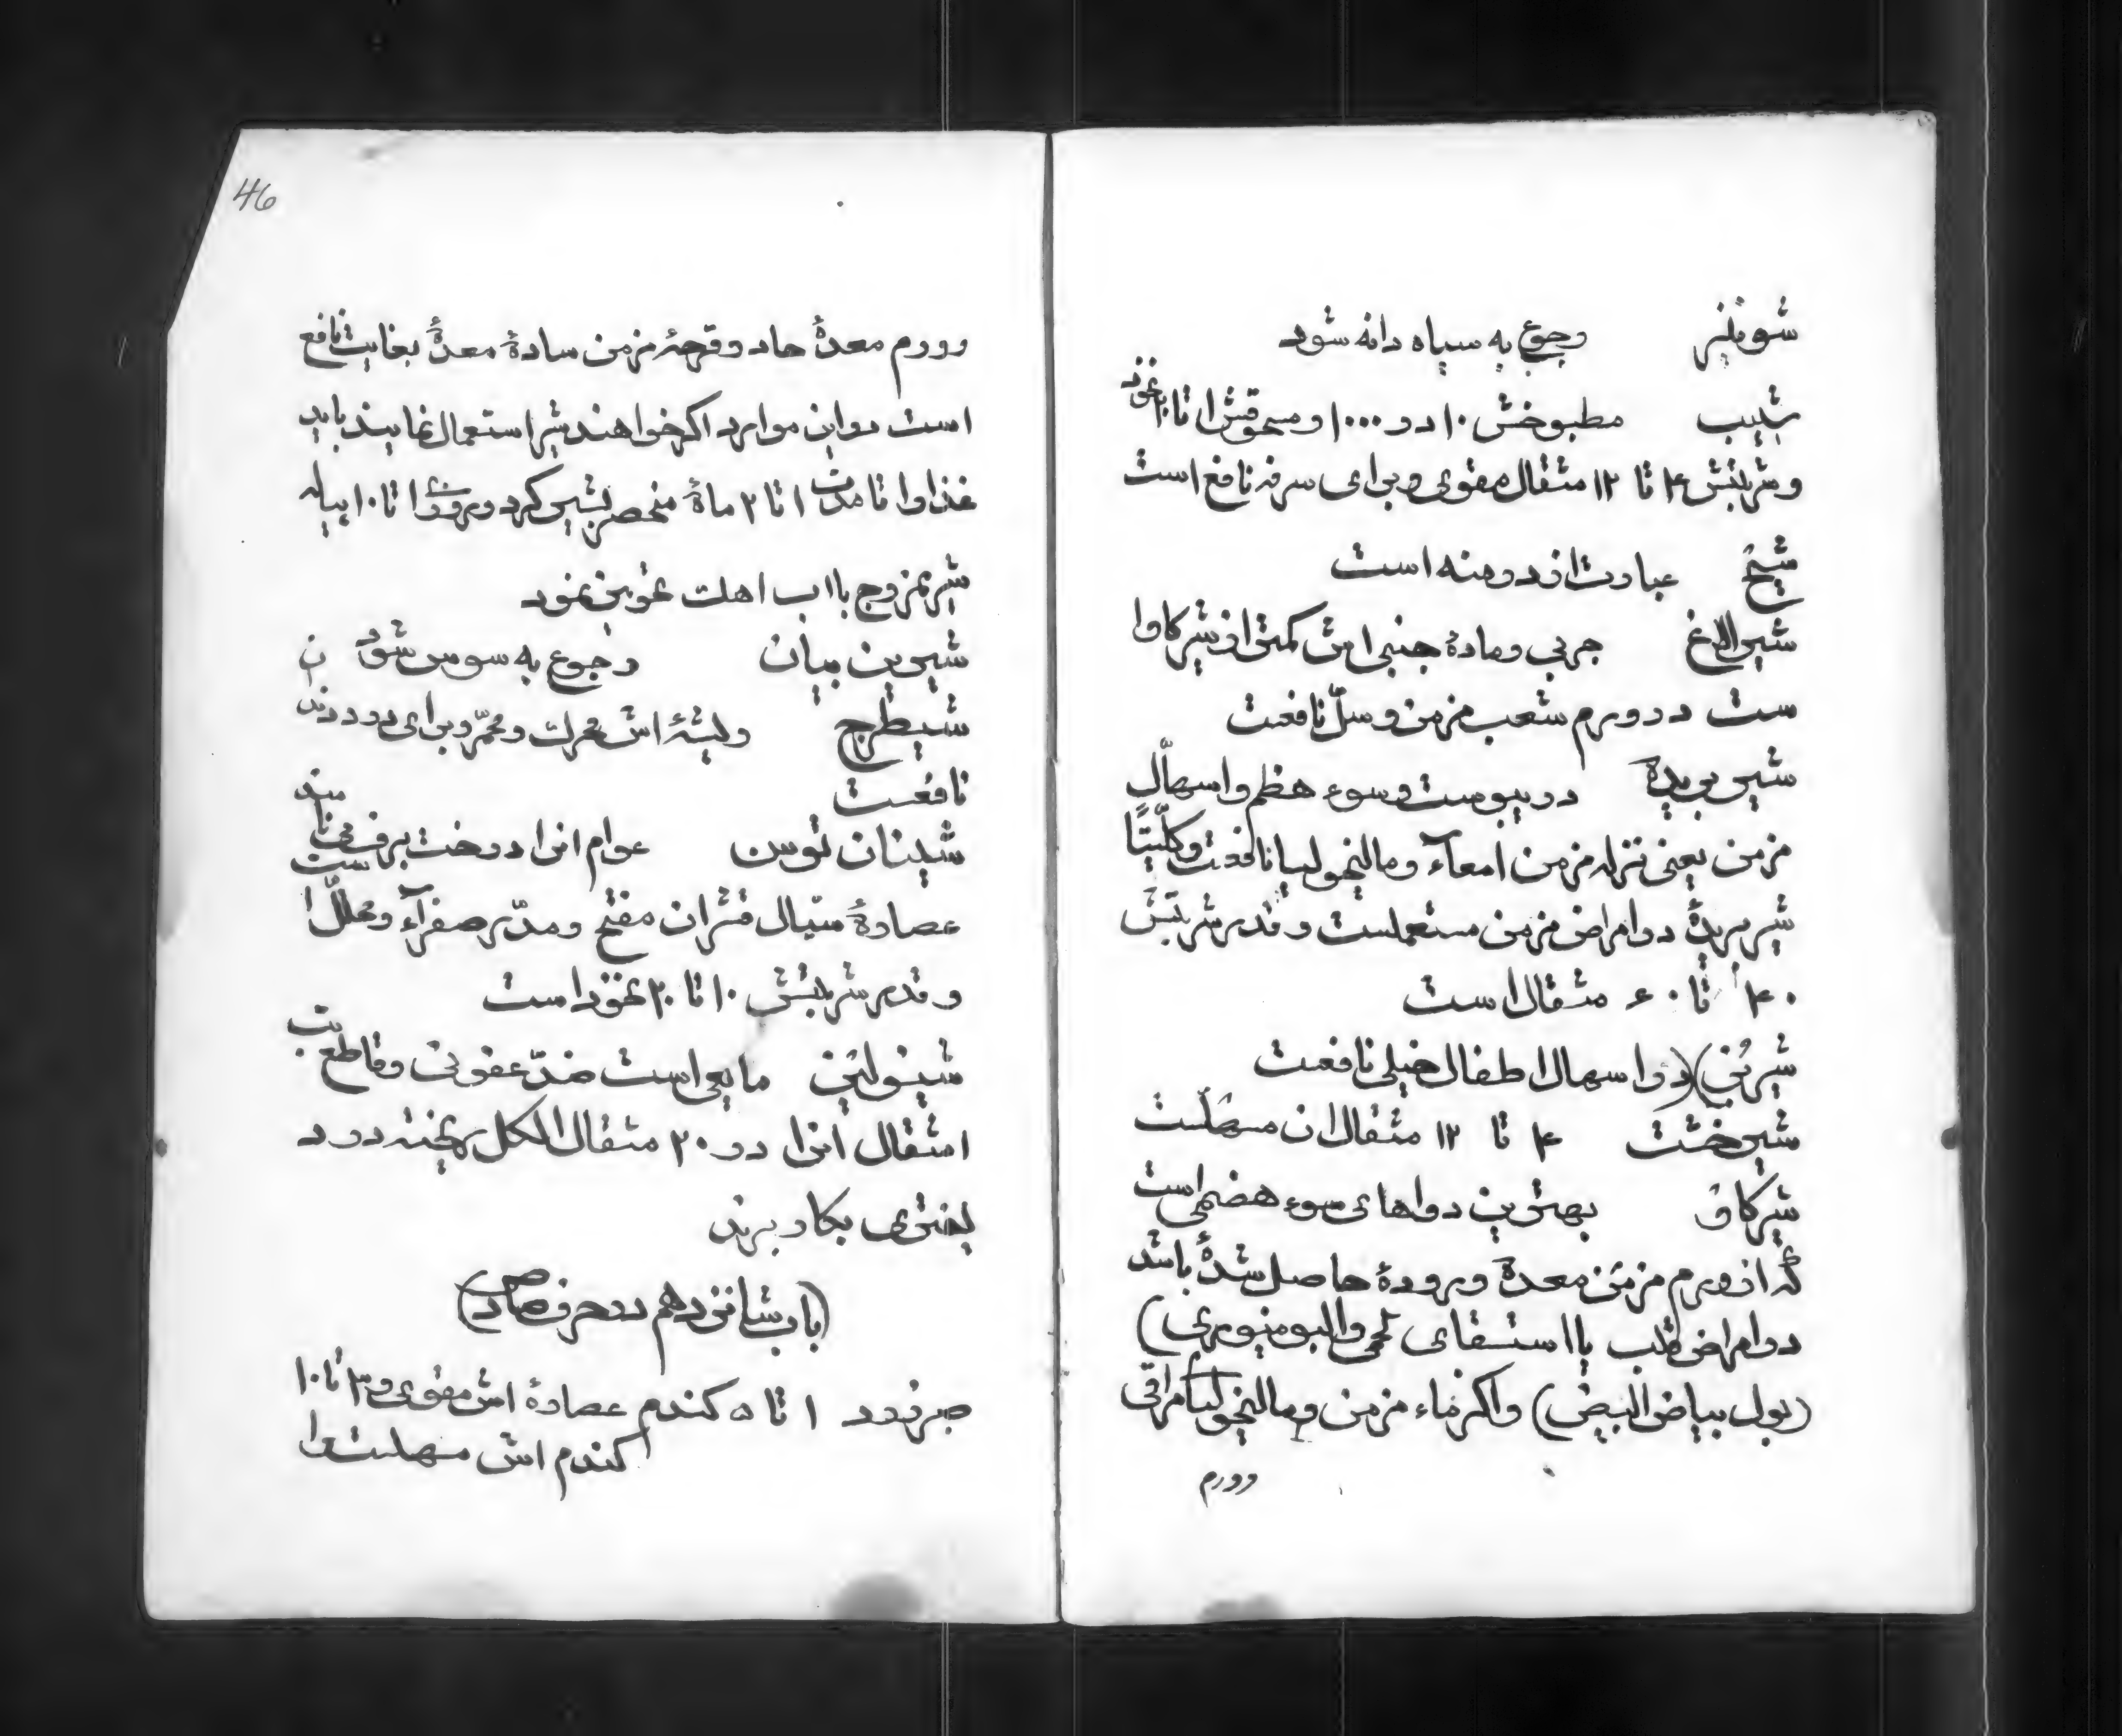 شونیز رجوع به سیاه دانه شود
شبیب مطبوخش ۱۰ در ۱۰۰۰ و مسحوقش ۱ تا ۲ نخود
و شربتش ۴ تا ۱۲ مثقال مقوی و برای سرفه نافع است
شیح عبارت از درمنه است
شیر الاغ چربی و مادهٔ جنبی اش کمتر از شیر کاوا
ست در ورم شعب مزمن و سلّ نافعت
شیر بریدة در یبوست و سوء هظم و اسهال
مزمن یعنی نزله مزمن امعآء و مالیخولیا نافعت و کلّیتًا
شیر بریدهٔ در امراض مزمن مستعملست و قدر شربتش
۴۰ تا ۶۰ مثقال است
شیر بُز) در اسهال اطفال خیلی نافعت
شیر خشت ۴ تا ۱۲ مثقال ان مسهلست
شیر کاو بهترین دواهای سوء هضمی است
که از ورم مزمن معدة و رودهٔ حاصل شدهٔ باشد
در امراض قلب یا استسقای لحمی و البومنیوری)
(بول بیاض البیض) و اکزماء مزمن و مالیخولیا مراقی
و ورم
46
و ورم معدهٔ حاد و قرحهٔ مزمن سادهٔ معدهٔ بغایت نافع
است در این موارد اکر خواهند شیر استعمال نمایند باید
غذا را تا مدت ۱ تا ۲ ماهٔ منحصر بشیر کرد و روزی ۱ تا ۱۰ پیاله
شیر ممزوج با اب اهک تجویز نمود
شیرین بیان رجوع به سوس شود
شیطرج ریشهٔ اش محرک و محمّر و برای درد دندان
نافعست
شینان توس عوام انرا درخت برف می نامند
عصارهٔ سیال قشر ان مفتح و مدّر صفرآء و محلّل است
و قدر شربتش ۱۰ تا ۲۰ نخود است
شینولین مایعی است ضدّ عفونت و قاطع تب
۱ مثقال انرا در ۲۰ مثقال الکل ریخته در د
یفتری بکار برند
(باب شانزدهم در حرف صاد ص)
صبر زرد ۱ تا ۵ کندم عصارهٔ اش مقوی و ۳ تا ۱۰
کندم اش مسهلست و ا